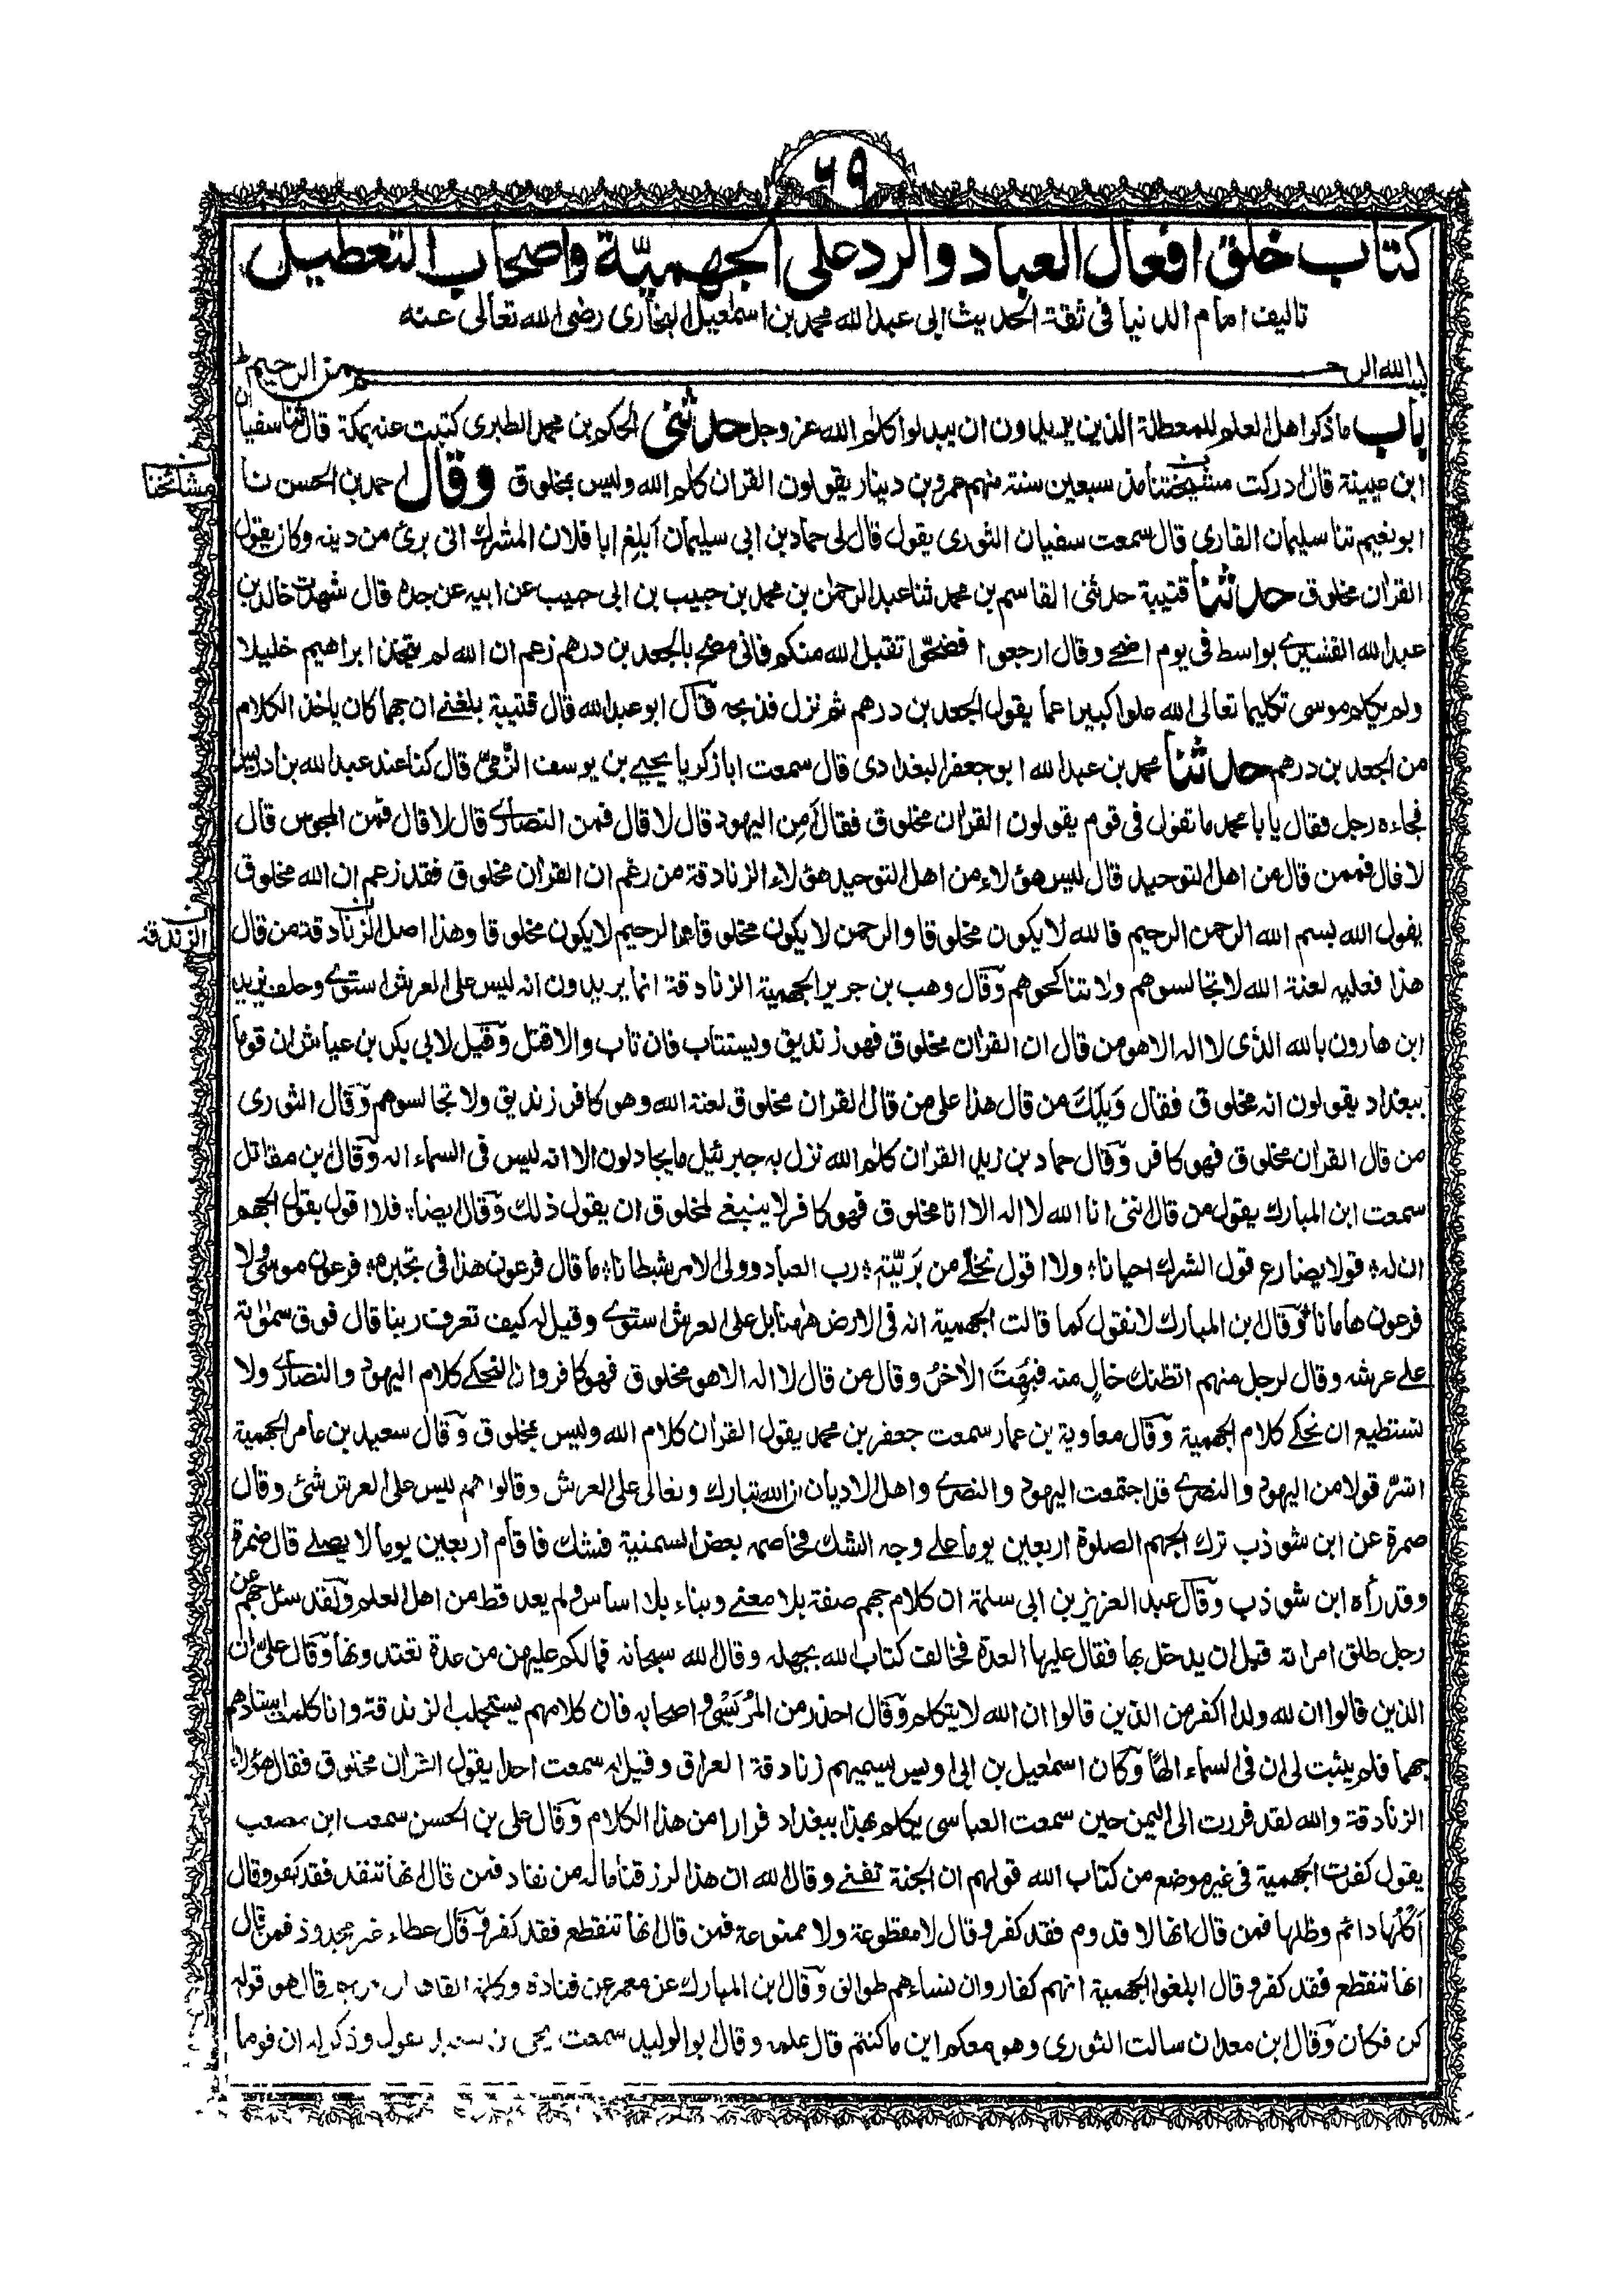 ٦٩
كتاب خلق افعال العباد والرد على الجهميّة واصحاب التعطيل
تاليف امام الدنيا فى ثقة الحديث ابى عبد الله محمد بن اسمٰعيل البخارى رضى الله تعالى عنه
بسم الله الرحمن الرحيم
باب ما ذكر اهل العلم للمعطلة الذين يريدون ان يبدلوا كلام الله عز وجل حدثنى الحكم بن محمد الطبرى كتبت عنه بمكة قال ثنا سفيان
ابن عيينة قال ادركت مشيختنا منذ سبعين سنة منهم عمرو بن دينار يقولون القران كلام الله وليس بمخلوق وقال احمد بن الحسن نا
مشائخنا
ابو نعيم ثنا سليمان القارى قال سمعت سفيان الثورى يقول قال لى حماد بن ابى سليمان ابلغ ابا فلان المشرك انى برئ من دينه وكان يقول
القران مخلوق حدثنا قتيبة حدثنى القاسم بن محمد ثنا عبد الرحمٰن بن محمد بن حبيب بن ابى حبيب عن ابيه عن جده قال شهدت خالد بن
عبد الله القشيرى بواسط فى يوم اضحى وقال ارجعوا فضحّوا تقبل الله منكم فانى مضح بالجعد بن درهم زعم ان الله لم يتخذ ابراهيم خليلا
ولم يكلم موسى تكليما تعالى الله علوا كبيرا عما يقول الجعد بن درهم ثم نزل فذبحه قال ابو عبد الله قال قتيبة بلغنى ان جهما كان ياخذ الكلام
من الجعد بن درهم حدثنا محمد بن عبد الله ابو جعفر البغدادى قال سمعت ابا زكريا يحيى بن يوسف الزّمىّ قال كنا عند عبد الله بن ادريس
فجاءه رجل فقال يا با محمد ما تقول فى قوم يقولون القران مخلوق فقال أمن اليهود قال لا قال فمن النصارى قال لا قال فمن المجوس قال
لا قال فممن قال من اهل التوحيد قال ليس هؤلاء من اهل التوحيد هؤلاء الزنادقة من زعم ان القران مخلوق فقد زعم ان الله مخلوق
يقول الله بسم الله الرحمن الرحيم فالله لا يكون مخلوقا والرحمن لا يكون مخلوقا والرحيم لا يكون مخلوقا وهذا اصل الزنادقة من قال
الزندقة
هذا فعليه لعنة الله لا تجالسوهم ولا تناكحوهم وقال وهب بن جرير الجهمية الزنادقة انما يريدون انه ليس على العرش استوى وحلف يزيد
ابن هارون بالله الذى لا اله الا هو من قال ان القران مخلوق فهو زنديق ويستتاب فان تاب والا قتل وقيل لابى بكر بن عياش ان قوما
ببغداد يقولون انه مخلوق فقال وَيلك من قال هذا على من قال القران مخلوق لعنة الله وهو كافر زنديق ولا تجالسوهم وقال الثورى
من قال القران مخلوق فهو كافر وقال حماد بن زيد القران كلام الله نزل به جبرئيل ما يجادلون الا انه ليس فى السماء اله وقال ابن مقاتل
سمعت ابن المبارك يقول من قال اننى انا الله لا اله الا انا مخلوق فهو كافر لا ينبغى لمخلوق ان يقول ذلك وقال ايضا: فلا اقول بقول الجهم
ان له: قولا يضارع قول الشرك احيانا: ولا اقول تخلى من بَرِيّته: رب العباد وولى الامر شيطانا: ما قال فرعون هذا فى تجبره: فرعون موسى ولا
فرعون هامانا: وقال ابن المبارك لا نقول كما قالت الجهمية انه فى الارض ههنا بل على العرش استوى وقيل له كيف تعرف ربنا قال فوق سمٰوٰته
على عرشه وقال لرجل منهم اتظنك خالٍ منه فبُهِتَ الاٰخرُ وقال من قال لا اله الا هو مخلوق فهو كافر وانا لنحكى كلام اليهود والنصارى ولا
نستطيع ان نحكى كلام الجهمية وقال معاوية بن عمار سمعت جعفر بن محمد يقول القران كلام الله وليس بمخلوق وقال سعيد بن عامر الجهمية
اشرّ قولا من اليهود والنصرى قد اجتمعت اليهود والنصرى واهل الاديان ان الله تبارك وتعالى على العرش وقالوا هم ليس على العرش شئ وقال
ضمرة عن ابن شوذب ترك الجهم الصلوة اربعين يوما على وجه الشك فخاصمه بعض السمنية فشك فاقام اربعين يوما لا يصلى قال ضمرة
وقد رأه ابن شوذب وقال عبد العزيز بن ابى سلمة ان كلام جهم صفة بلا معنى وبناء بلا اساس ولم يعد قط من اهل العلم ولقد سئل جهم عن
رجل طلق امراته قبل ان يدخل بها فقال عليها العدة فخالف كتاب الله بجهله وقال الله سبحانه فما لكم عليهن من عدة تعتدونها وقال علىّ ان
الذين قالوا ان لله ولدا اكفر من الذين قالوا ان الله لا يتكلم وقال احذر من المَرِيسى واصحابه فان كلامهم يستجلب الزندقة وانا كلمت استاذهم
جهما فلم يثبت لى ان فى السماء الٰهًا وكان اسمٰعيل بن ابى اويس يسميهم زنادقة العراق وقيل له سمعت احدا يقول القران مخلوق فقال هؤلاء
الزنادقة والله لقد فررت الى اليمن حين سمعت العباسى يكلم بهذا ببغداد فرارا من هذا الكلام وقال على بن الحسن سمعت ابن مصعب
يقول كفرت الجهمية فى غير موضع من كتاب الله قولهم ان الجنة تفنى وقال الله ان هذا لرزقنا ما له من نفاد فمن قال انها تنفد فقد كفر وقال
اُكُلُها دائم وظلها فمن قال انها لا تدوم فقد كفر وقال لا مقطوعة ولا ممنوعة فمن قال انها تنقطع فقد كفر وقال عطاء غير مجذوذ فمن قال
انها تنقطع فقد كفر وقال ابلغوا الجهمية انهم كفار وان نساءهم طوالق وقال ابن المبارك عن معمر عن قتادة وكلمته القاها الى مريم قال هو قوله
كن فكان وقال ابن معدان سالت الثورى وهو معكم اين ما كنتم قال علمه وقال ابو الوليد سمعت يحيى بن سعيد يقول وذكر له ان قوما